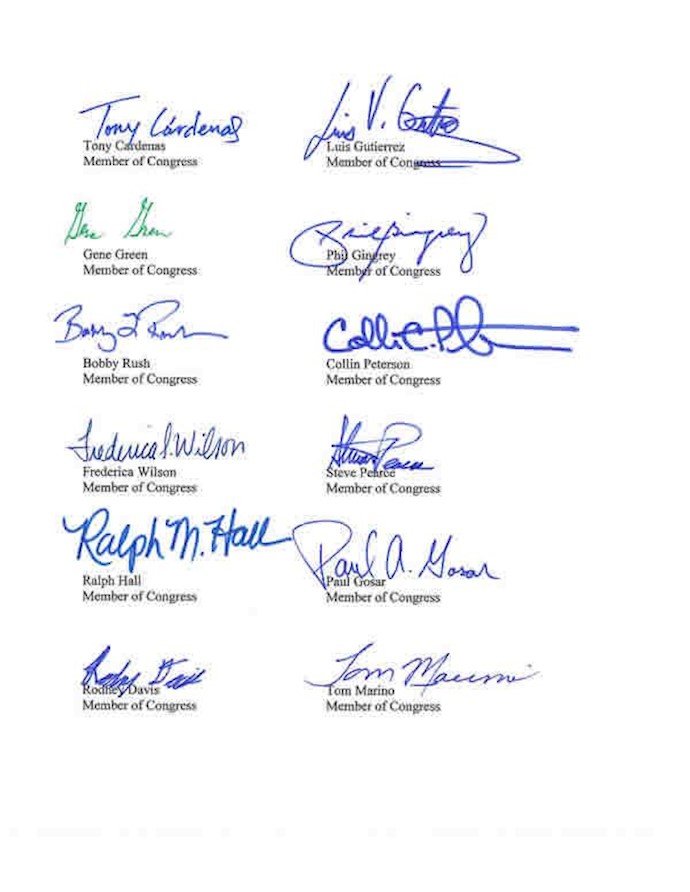 Tony Cárdenas
Luis V. Gutierrez
Tony Cardenas
Luis Gutierrez
Member of Congress
Member of Congress
Gene Green
Phil Gingrey
Gene Green
Phil Gingrey
Member of Congress
Member of Congress
Bobby L Rush
Collin C. P
Bobby Rush
Collin Peterson
Member of Congress
Member of Congress
Frederica S. Wilson
Stevan Pearce
Frederica Wilson
Steve Pearce
Member of Congress
Member of Congress
Ralph M. Hall
Paul A. Gosar
Ralph Hall
Paul Gosar
Member of Congress
Member of Congress
Rodney Davis
Tom Marino
Rodney Davis
Tom Marino
Member of Congress
Member of Congress